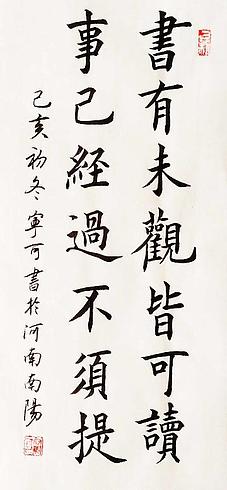 書有未觀皆可讀
事已經過不須提
己亥初冬寧可書於河南南陽